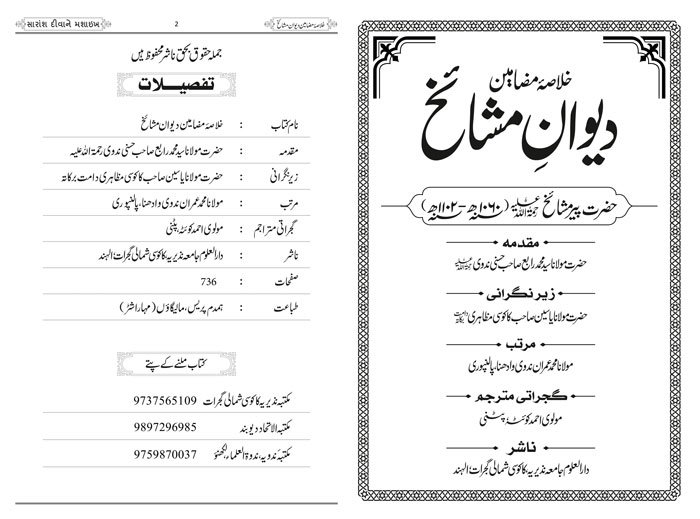 خلاصۂ مضامین
دیوانِ مشائخ
حضرت پیر مشائخ رحمۃ اللہ علیہ (۱۰۶۰ھ – ۱۱۰۲ھ)
مقدمہ
حضرت مولانا سید محمد رابع صاحب حسنی ندوی
زیر نگرانی
حضرت مولانا یاسین صاحب کاکوسی مظاہری
مرتب
مولانا محمد عمران ندوی وادھنا، پالنپوری
گجراتی مترجم
مولوی احمد کونٹہ، پٹنی
ناشر
دارالعلوم جامعہ نذیریہ کاکوسی شمالی گجرات الہند
خلاصۂ مضامین دیوانِ مشائخ
2
સારાંશ દીવાને મશાઇખ
جملہ حقوق بحق ناشر محفوظ ہیں
تفصیلات
نام کتاب : خلاصۂ مضامین دیوان مشائخ
مقدمہ : حضرت مولانا سید محمد رابع صاحب حسنی ندوی رحمۃ اللہ علیہ
زیر نگرانی : حضرت مولانا یاسین صاحب کاکوسی مظاہری دامت برکاتہ
مرتب : مولانا محمد عمران ندوی وادھنا، پالنپوری
گجراتی مترجم : مولوی احمد کونٹہ، پٹنی
ناشر : دارالعلوم جامعہ نذیریہ کاکوسی شمالی گجرات الہند
صفحات : 736
طباعت : ہمدم پریس، مالیگاؤں (مہاراشٹر)
کتاب ملنے کے پتے
مکتبہ نذیریہ کاکوسی شمالی گجرات 9737565109
مکتبہ الاتحاد دیوبند 9897296985
مکتبہ ندویہ، ندوۃ العلماء لکھنؤ 9759870037